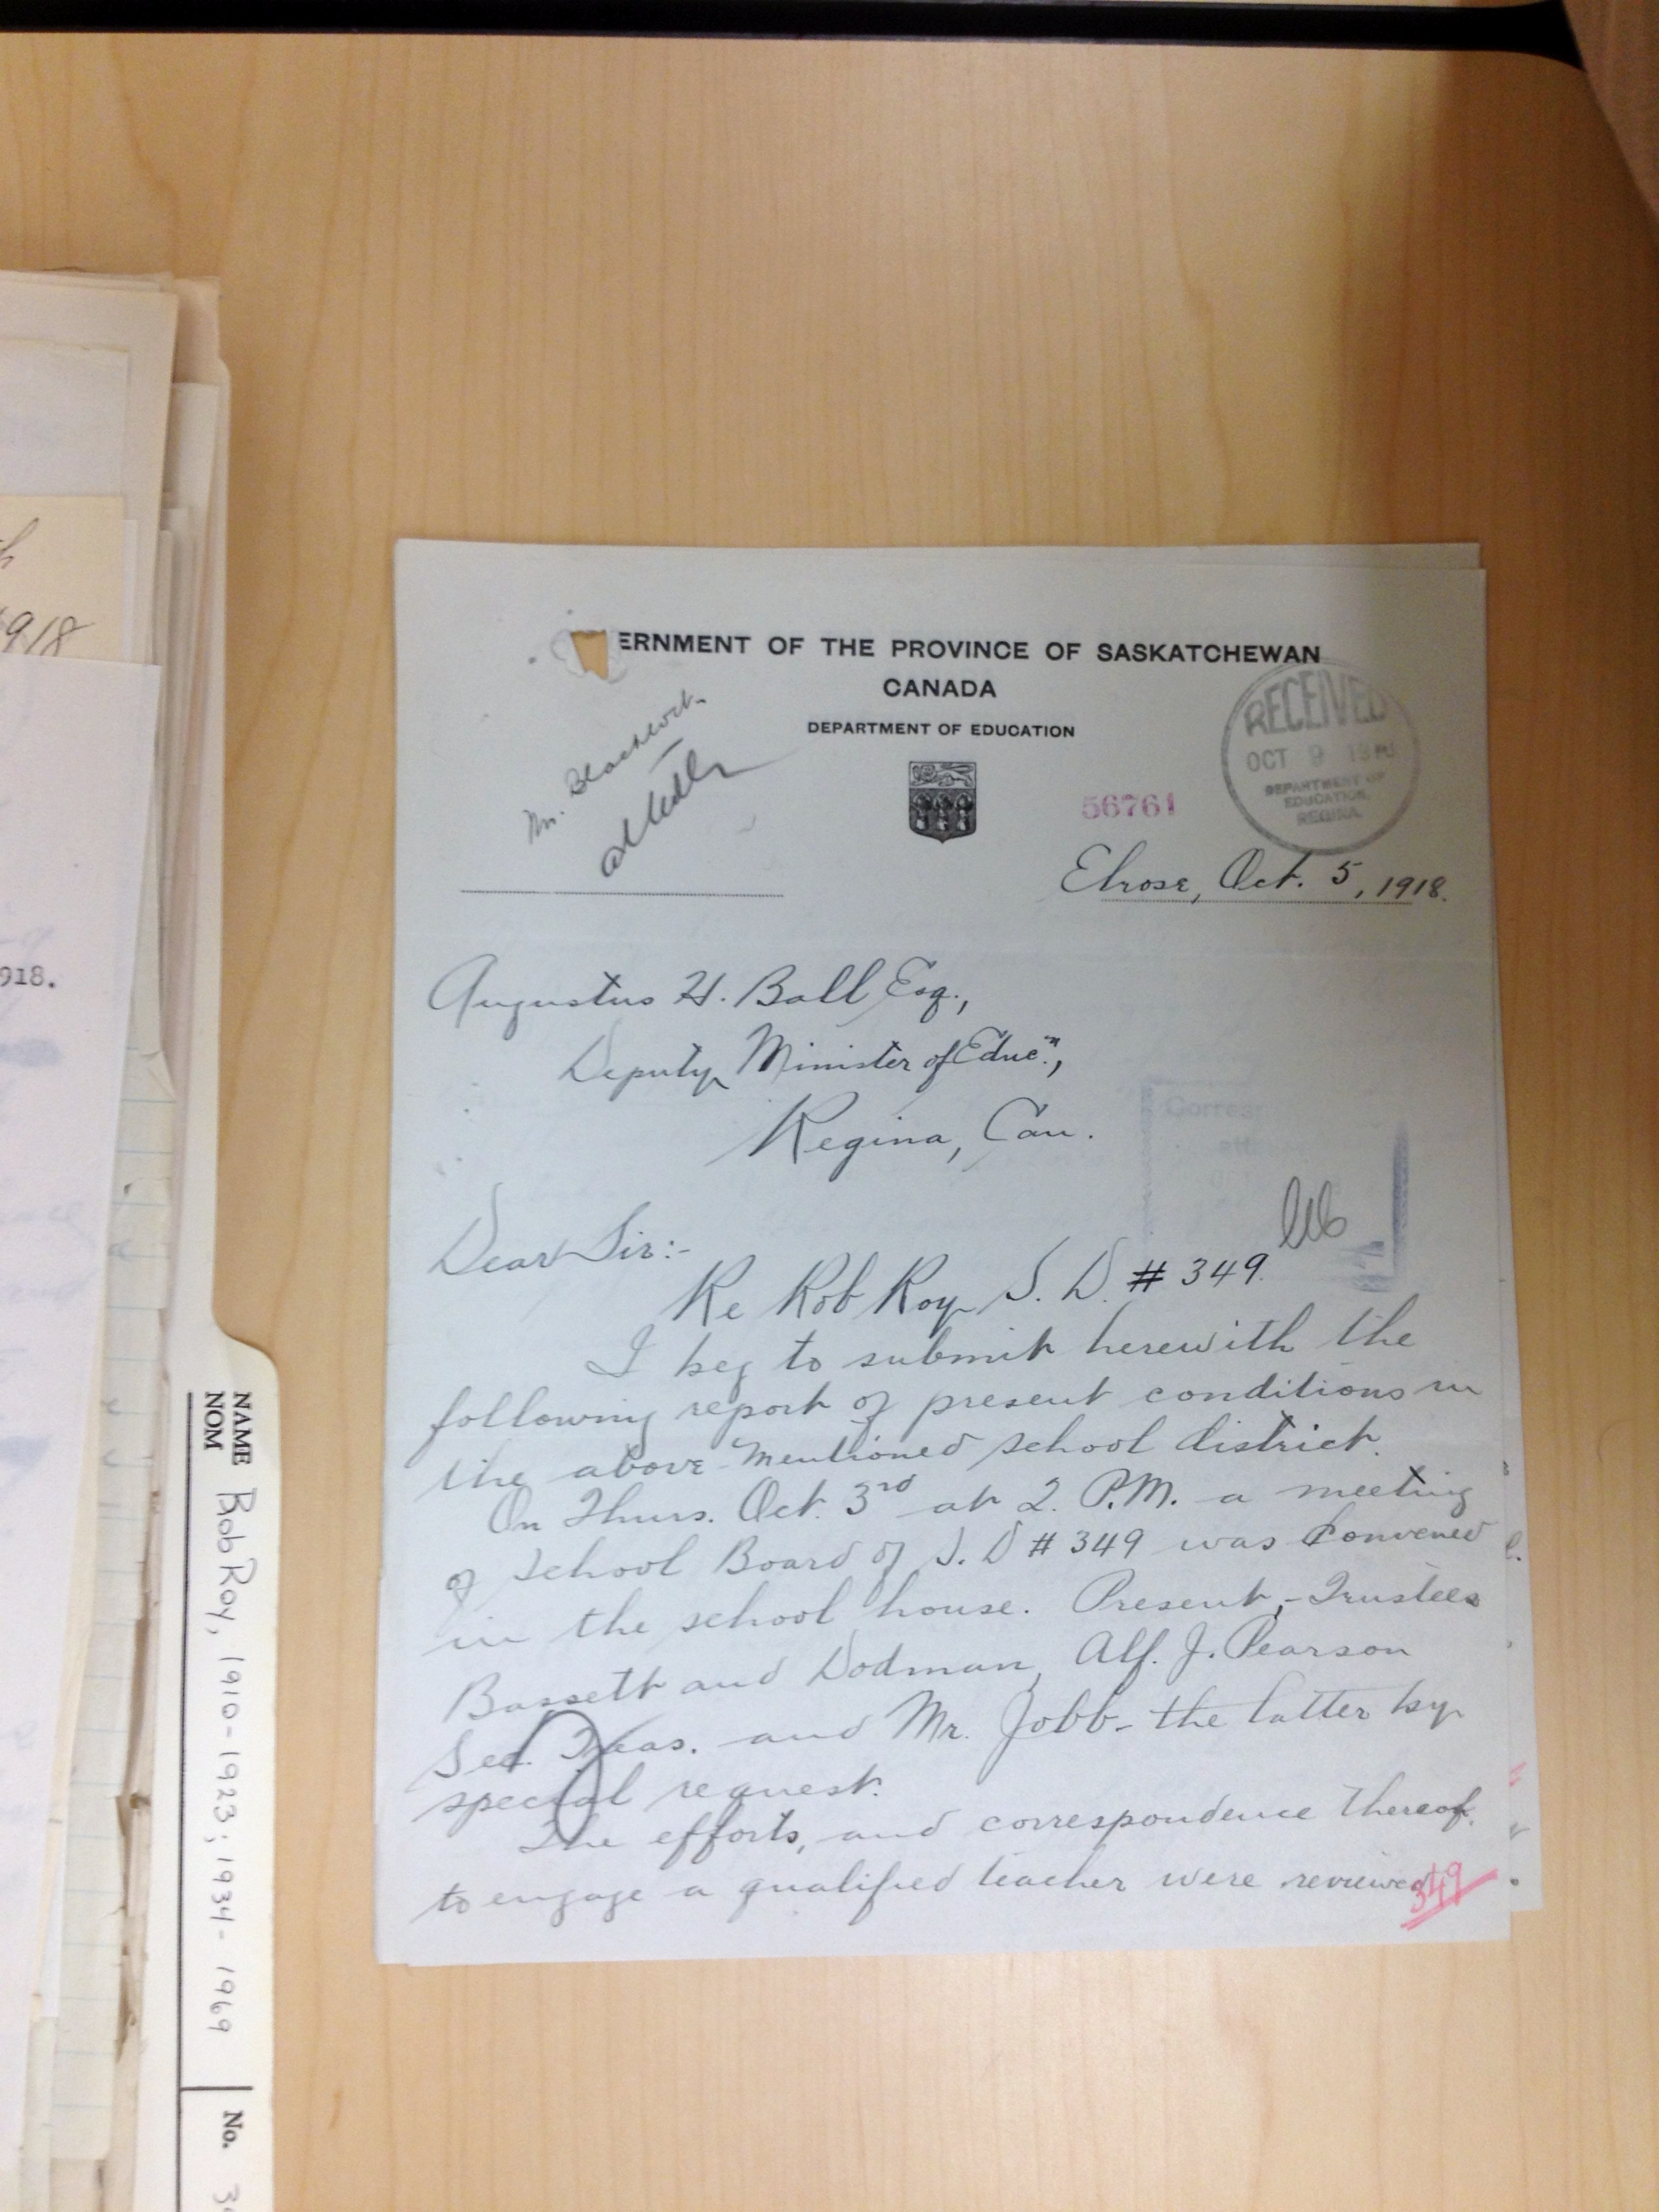 ERNMENT OF THE PROVINCE OF SASKATCHEWAN
CANADA
DEPARTMENT OF EDUCATION
RECEIVED
OCT 9
DEPARTMENT OF
EDUCATION,
REGINA.
Mr.
56761
Elrose, Oct. 5, 1918.
Augustus H. Ball Esq.,
Deputy Minister of Educ.n,
Regina, Can.
Corres
Dear Sir:-
Re Rob Roy S. D. # 349.
I beg to submit herewith the
following report of present conditions in
the above-mentioned school district.
On Thurs. Oct. 3rd at 2. P.M. a meeting
of School Board of S. D # 349 was convened
in the school house. Present,-Trustees
Bassett and Dodman, Alf. J. Pearson
Sec. Treas. and Mr. Jobb- the latter by
special request.
The efforts, and correspondence thereof,
to engage a qualified teacher were reviewed
349
918
918.
NAME Bob Roy, 1910-1923; 1934-1969
NOM
No.